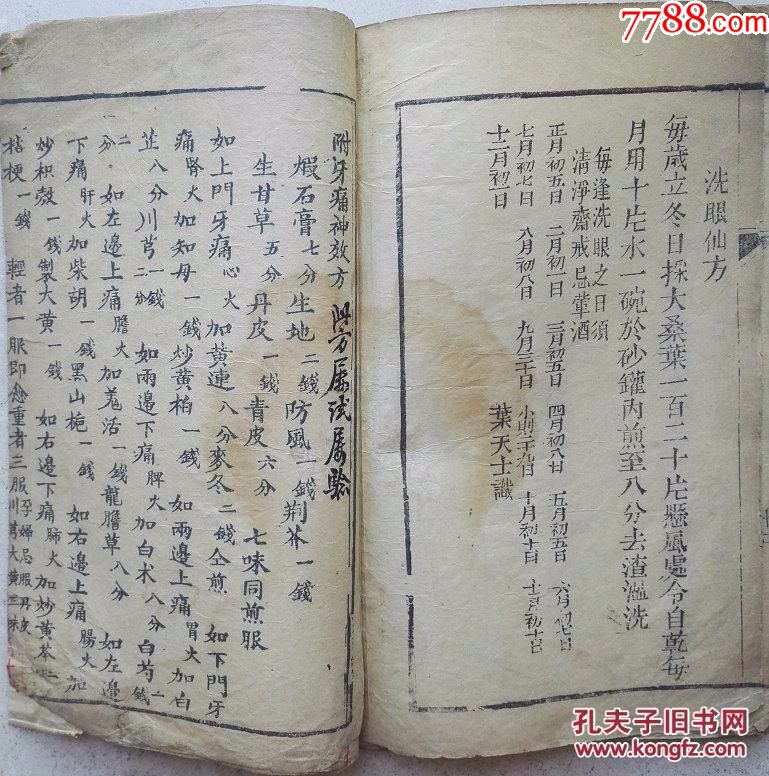 7788.com
洗眼仙方
每歲立冬日採大桑葉一百二十片懸風處令自乾每
月用十片水一碗於砂鑵內煎至八分去渣溫洗
每逢洗眼之日須
清淨齋戒忌葷酒
正月初五日 二月初一日 三月初五日 四月初八日 五月初五日 六月初七日
七月初七日 八月初八日 九月三十日 小則二十九日 十月初十日 十一月初十日
十二月初一日
葉天士識
附牙痛神效方 此方屢試屢驗
煅石膏七分 生地二錢 防風一錢 荆芥一錢
生甘草五分 丹皮一錢 青皮六分 七味同煎服
如上門牙痛心火 加黃連八分 麥冬二錢 仝煎 如下門牙
痛腎火 加知母一錢 炒黃栢一錢 如兩邊上痛胃火 加白
芷八分 川芎一錢二分 如兩邊下痛脾火 加白术八分 白芍一錢
二分 如左邊上痛膽火 加羗活一錢 龍膽草八分 如左邊
下痛肝火 加柴胡一錢 黑山梔一錢 如右邊上痛腸火 加
炒枳殼一錢 製大黃一錢 如右邊下痛肺火 加炒黃芩一錢二
桔梗一錢 輕者一服即愈重者三服 孕婦忌服丹皮 川芎大黃三味
孔夫子旧书网
www.kongfz.com